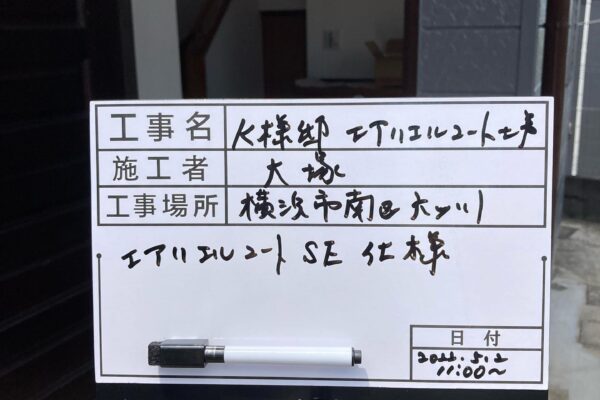 工事名 K様邸 エアリエルコート工事
施工者 大塚
工事場所 横浜市南区大
エアリエルコート SE 仕様
日付
2022.5.2
11:00〜